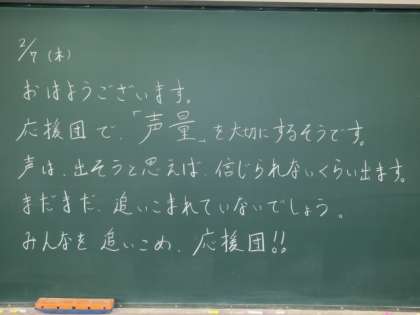 2/7(木)
おはようございます。
応援団で、「声量」を大切にするそうです。
声は、出そうと思えば、信じられないくらい出ます。
まだまだ、追いこまれていないでしょう。
みんなを追いこめ、応援団!!